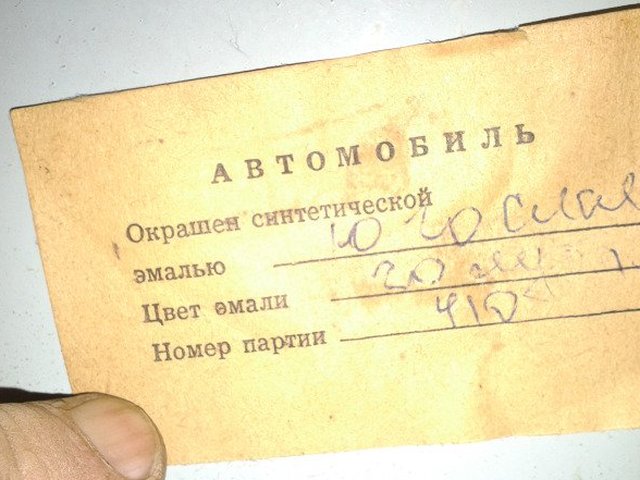 АВТОМОБИЛЬ
Окрашен синтетической
эмалью ЮГОСлав
Цвет эмали
Номер партии 410